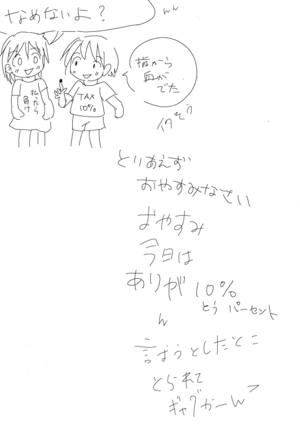 なめないよ？
ww
指から
血が
でた
払ったら
負け
TAX
10%
とりあえず
おやすみなさい
おやすみ
今日は
ありが10%
とうパーセント
ん
言おうとしたとこ
とられて
ギャグかーw